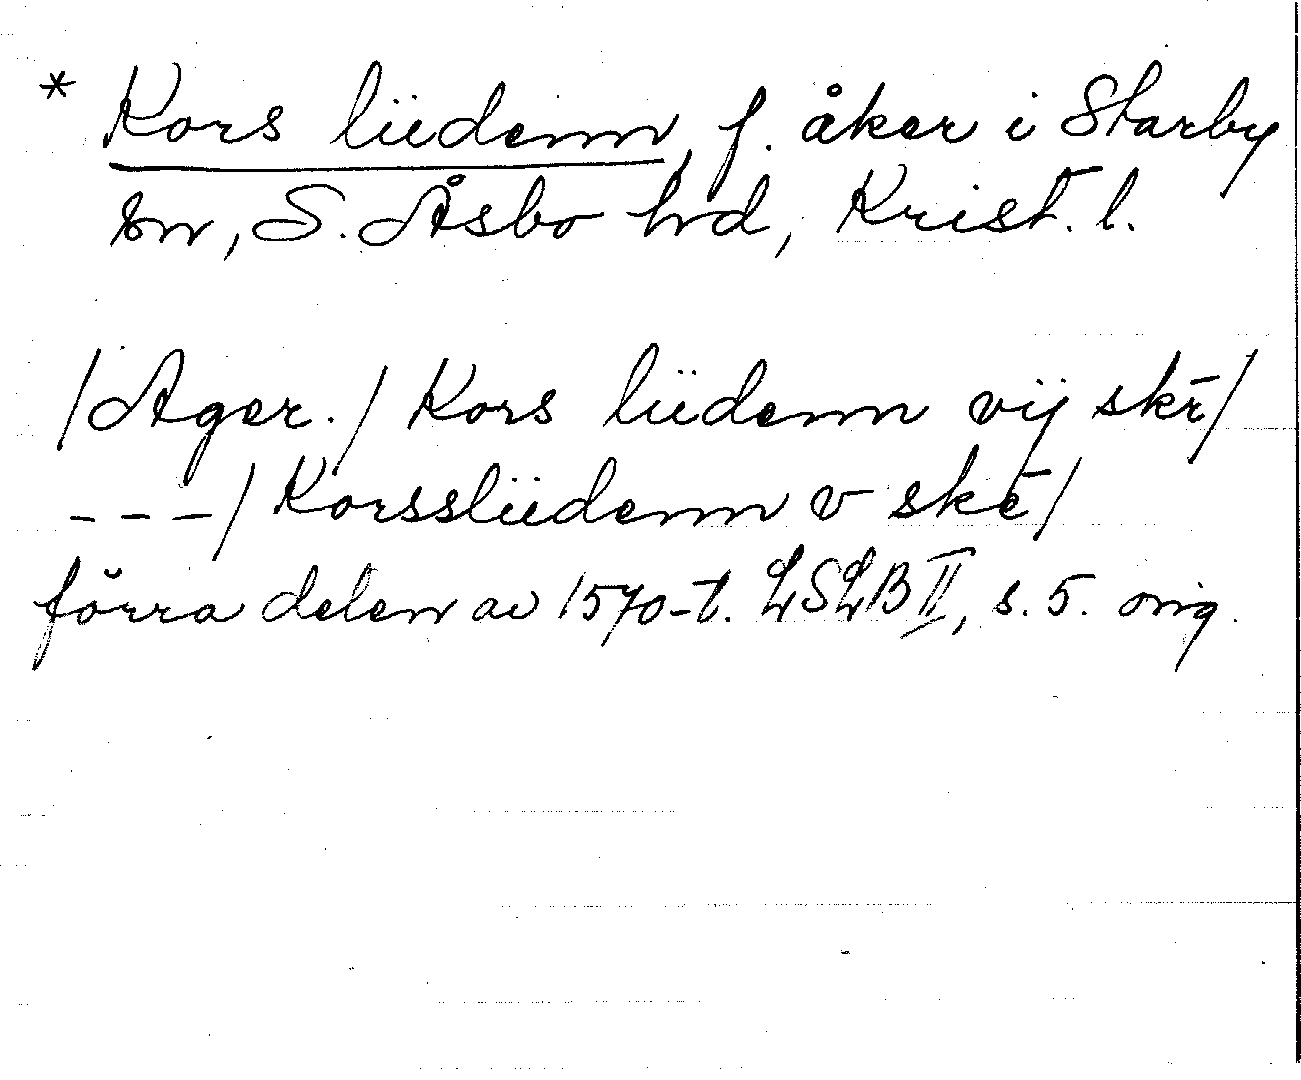 * Kors lüdenn, f. åker i Starby
sn, S. Åsbo hd, Krist. l.
/Ager./ Kors lüdenn vij skē/
---/ Korsslüdenn v skē/
förra delen av 1570-t. LSLB II, s. 5. orig.